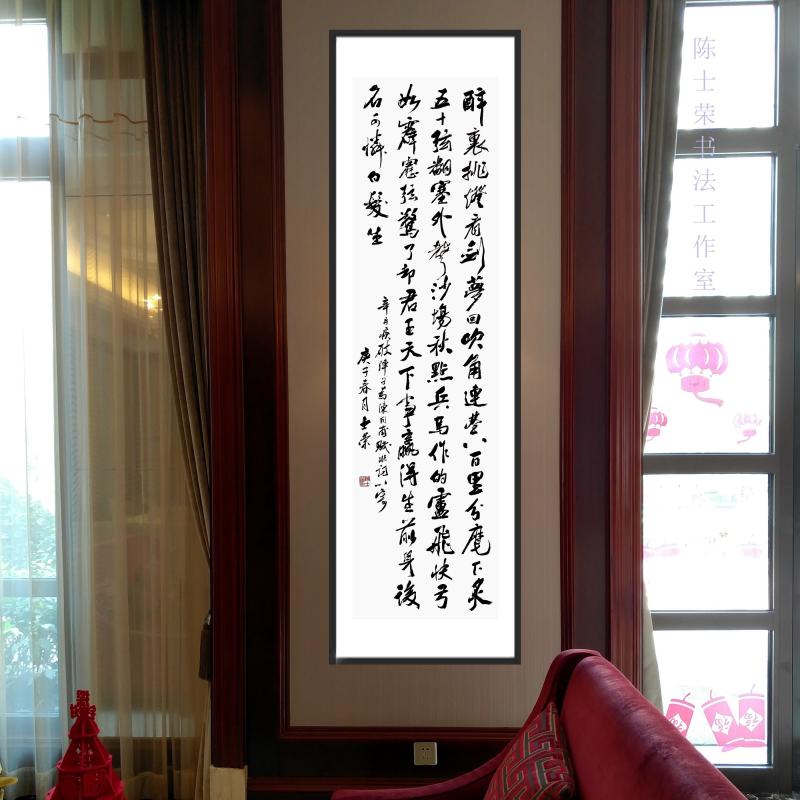 陈士荣书法工作室
醉裏挑燈看劍夢回吹角連營八百里分麾下炙
五十弦翻塞外聲沙場秋點兵馬作的盧飛快弓
如霹靂弦驚了却君王天下事贏得生前身後
名可憐白髮生
辛弃疾破陣子爲陳同甫賦壯詞以寄
庚子春月士榮